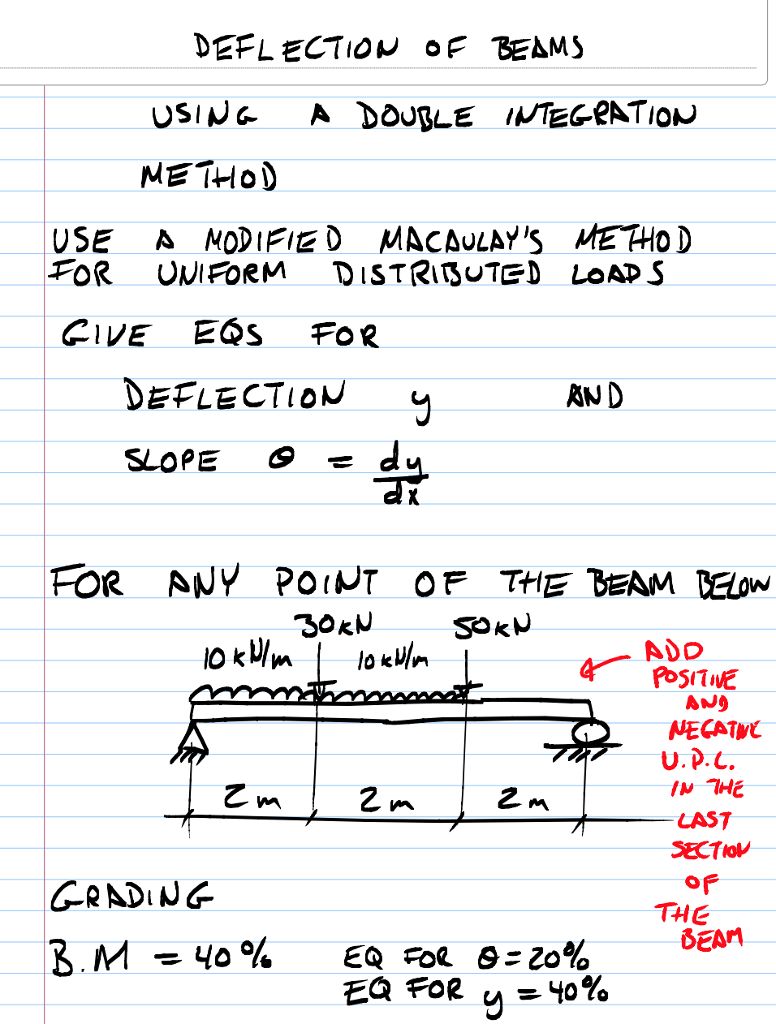 DEFLECTION OF BEAMS
USING A DOUBLE INTEGRATION
METHOD
USE A MODIFIED MACAULAY'S METHOD
FOR UNIFORM DISTRIBUTED LOADS
GIVE EQS FOR
DEFLECTION y AND
SLOPE θ = dy
dx
FOR ANY POINT OF THE BEAM BELOW
30kN 50kN
10kN/m 10kN/m
2m 2m 2m
ADD
POSITIVE
AND
NEGATIVE
U.D.L.
IN THE
LAST
SECTION
OF
THE
BEAM
GRADING
B.M = 40% EQ FOR θ = 20%
EQ FOR y = 40%